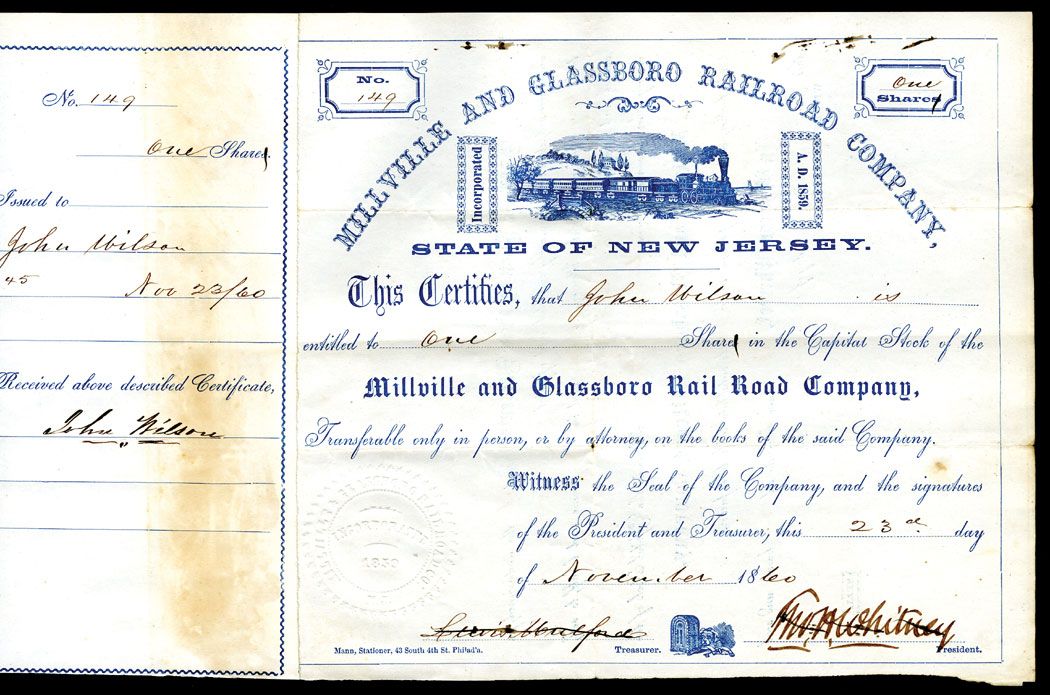 No. 149
One Shares
Issued to
John Wilson
45 Nov 23/60
Received above described Certificate,
John Wilson
No.
149
One
Shares
MILLVILLE AND GLASSBORO RAILROAD COMPANY,
Incorporated
A. D. 1859.
STATE OF NEW JERSEY.
This Certifies, that John Wilson is
entitled to One Share in the Capital Stock of the
Millville and Glassboro Rail Road Company,
Transferable only in person, or by attorney, on the books of the said Company.
Witness the Seal of the Company, and the signatures
of the President and Treasurer, this 23d day
of November 1860
1859
Lewis Mulford
Treasurer.
Tho. H. Whitney
President.
Mann, Stationer, 43 South 4th St. Philad'a.